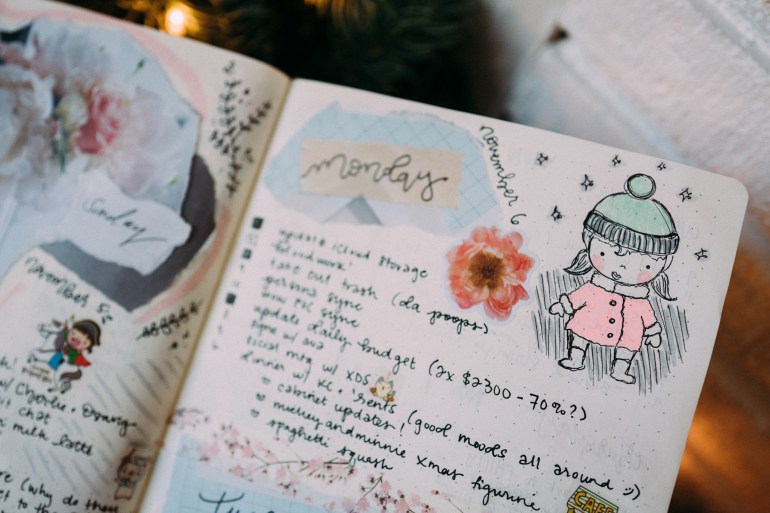 Sunday
November 5
w/ Charlie +
chat
milk
(why do these
get to the
monday
november 6
update iCloud storage
take out trash (da poops)
persona sync
sync
update daily budget (2x $2300 - 70%?)
sync w/
social mtg w/ XDS
dinner w/ KC + rents (good moods all around :))
cabinet updates,
mickey and minnie xmas figurine
spaghetti squash
Tue
CAFE